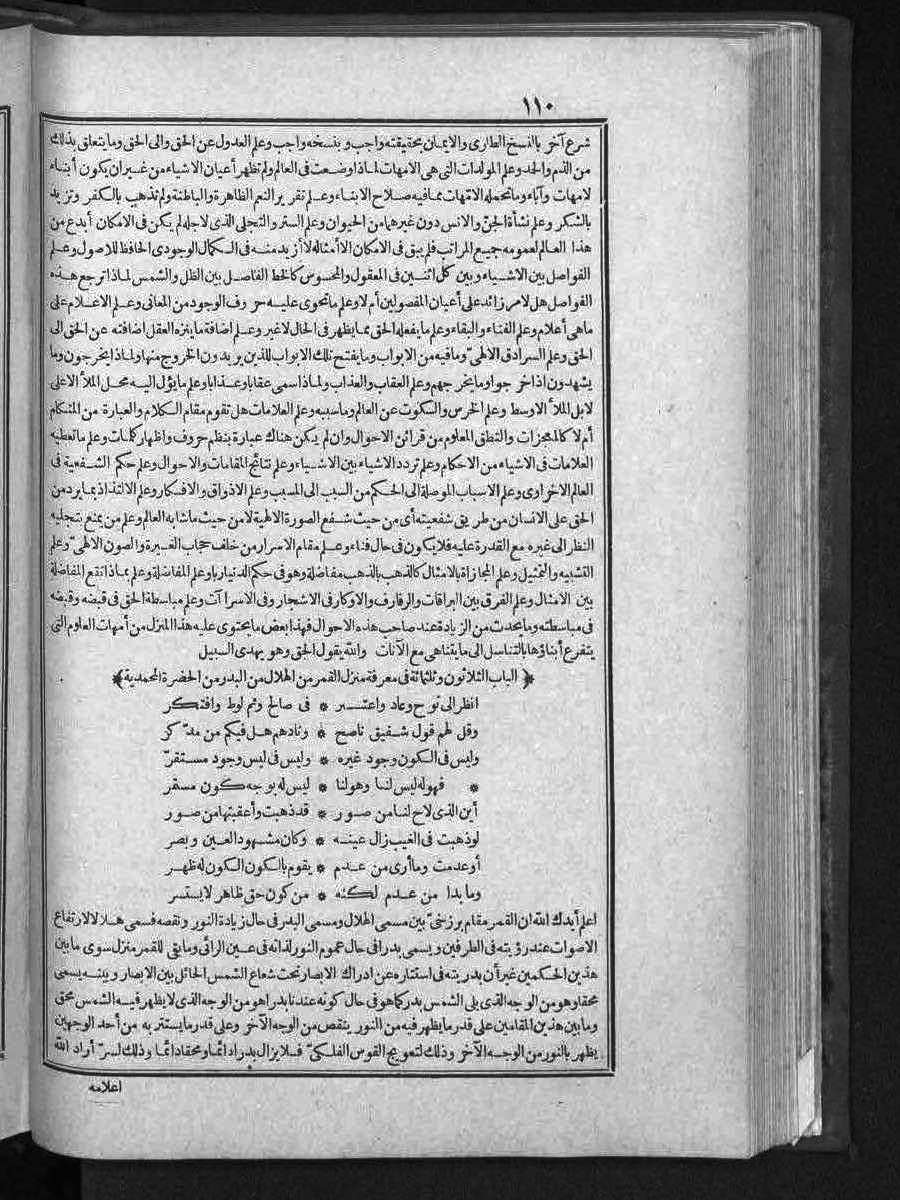 ١١٠
شرع آخر بالنسخ الطارئ والايمان بحقيقته واجب وبنسخه واجب وعلم العدول عن الحق والى الحق وما يتعلق بذلك
من الذم والحمد وعلم المولدات التى هى الامهات لماذا وضعت فى العالم ولم تظهر أعيان الاشياء من غير ان يكون أبناء
لامهات وآباء وما تحمله الامهات مما فيه صلاح الابناء وعلم تقرير النعم الظاهرة والباطنة ولم تذهب بالكفر وتزيد
بالشكر وعلم نشأة الجن والانس دون غيرهما من الحيوان وعلم الستر والتجلى الذى لاجله لم يكن فى الامكان أبدع من
هذا العالم لعمومه جميع المراتب فلم يبق فى الامكان الا أمثاله لا أزيد منه فى الكمال الوجودى الحافظ للاصول وعلم
الفواصل بين الاشياء وبين كل اثنين فى المعقول والمحسوس كالخط الفاصل بين الظل والشمس لماذا ترجع هذه
الفواصل هل لامر زائد على أعيان المفصولين أم لا وعلم ما تحوى عليه حروف الوجود من المعانى وعلم الاعلام على
ماهى أعلام وعلم الفناء والبقاء وعلم ما يفعله الحق مما يظهر فى الحال لا غير وعلم اضافة ما ينزه العقل اضافته عن الحق الى
الحق وعلم السرادق الالهىّ وما فيه من الابواب وما يفتح تلك الابواب للذين يريدون الخروج منها ولماذا يخرجون وما
يشهدون اذا خرجوا وما يخرجهم وعلم العقاب والعذاب ولماذا سمى عقابا وعذابا وعلم ما يؤل اليه محل الملأ الاعلى
لا بل الملأ الاوسط وعلم الخرس والسكوت عن العالم وما سببه وعلم العلامات هل تقوم مقام الكلام والعبارة من المتكلم
أم لا كالمعجزات والنطق المعلوم من قرائن الاحوال وان لم يكن هناك عبارة بنظم حروف واظهار كلمات وعلم ما تعطيه
العلامات فى الاشياء من الاحكام وعلم تردد الاشياء بين الاشياء وعلم نتائج المقامات والاحوال وعلم حكم الشفعية فى
العالم الاخراوى وعلم الاسباب الموصلة الى الحكم من السبب الى المسبب وعلم الاذواق والافكار وعلم الالتذاذ بما يرد من
الحق على الانسان من طريق شفعيته أى من حيث شفع الصورة الالهية لا من حيث ما شابه العالم وعلم من يمنع بتجليه
النظر الى غيره مع القدرة عليه فلا يكون فى حال فناء وعلم مقام الاسرار من خلف حجاب الغيرة والصون الالهىّ وعلم
التشبيه والتمثيل وعلم المجازاة بالامثال كالذهب بالذهب مفاضلة وهو فى حكم الدنيا ربا وعلم المفاضلة وعلم بماذا تقع المفاضلة
بين الامثال وعلم الفرق بين البراقات والرفارف والاوكار فى الاشجار وفى الاسراآت وعلم مباسطة الحق فى قبضه وقبضه
فى مباسطته وما يحدث من الزيادة عند صاحب هذه الاحوال فهذا بعض ما يحتوى عليه هذا المنزل من أمهات العلوم التى
يتفرع أبناؤها بالتناسل الى ما يتناهى مع الآنات والله يقول الحق وهو يهدى السبيل
﴿ الباب الثلاثون وثلثمائة فى معرفة منزل القمر من الهلال من البدر من الحضرة المحمدية ﴾
انظر الى نوح وعاد واعتبر * فى صالح وثم لوط وافتكر
وقل لهم قول شفيق ناصح * ونادهم هل فيكم من مدّكر
وليس فى الكون وجود غيره * وليس فى ليس وجود مستقرّ
* فهو له ليس لنا وهو لنا * ليس له بوجه كون مستمر
أين الذى لاح لنا من صور * قد ذهبت وأعقبتها من صور
لو ذهبت فى الغيب زال عينه * وكان مشهود العين وبصر
أو عدمت وما أرى من عدم * يقوم بالكون الكون له ظهر
وما بدا من عدم لكنه * من كون حق ظاهر لا يستسر
اعلم أيدك الله ان القمر مقام برزخىّ بين مسمى الهلال ومسمى البدر فى حال زيادة النور ونقصه فسمى هلالا لارتفاع
الاصوات عند رؤيته فى الطرفين ويسمى بدرا فى حال عموم النور لذاته فى عين الرائى وما بقى للقمر منزل سوى ما بين
هذين الحكمين غير أن بدريته فى استتاره عن ادراك الابصار تحت شعاع الشمس الحائل بين الابصار وبينه يسمى
محقا وهو من الوجه الذى يلى الشمس بدر كما هو فى حال كونه عندنا بدرا هو من الوجه الذى لا يظهر فيه الشمس محق
وما بين هذين المقامين على قدر ما يظهر فيه من النور ينقص من الوجه الآخر وعلى قدر ما يستتر به من أحد الوجهين
يظهر بالنور من الوجه الآخر وذلك لتعويج القوس الفلكىّ فلا يزال بدرا دائما ومحقا دائما وذلك لسرّ أراد الله
اعلامه